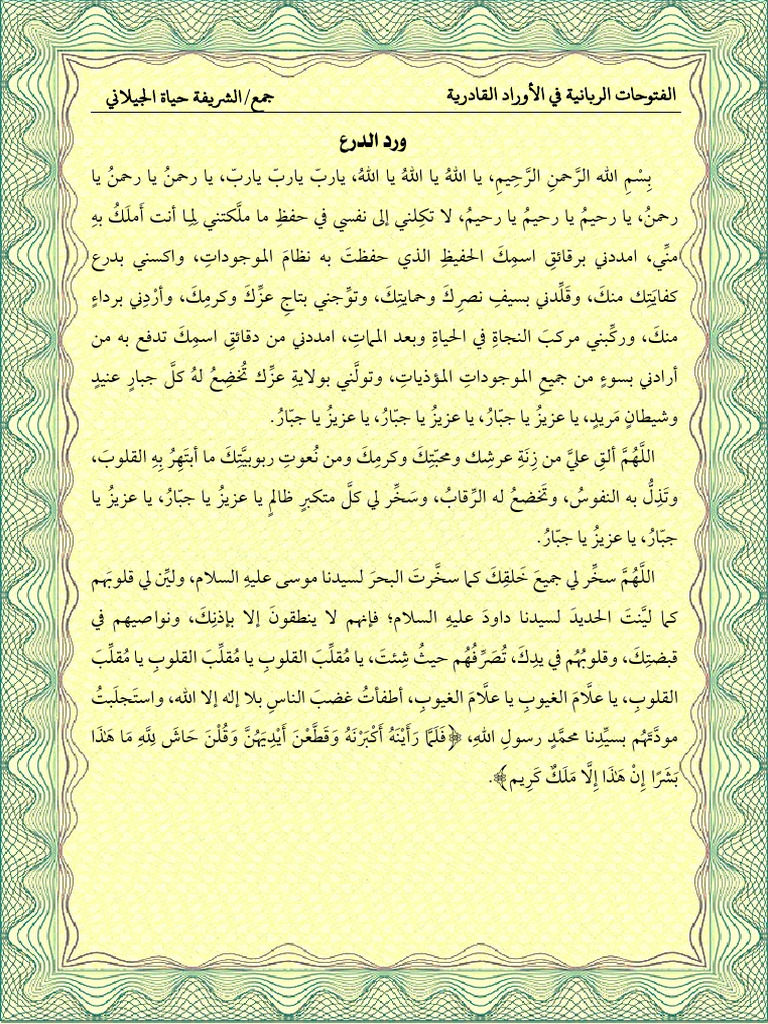 الفتوحات الربانية في الأوراد القادرية جمع/الشريفة حياة الجيلاني
ورد الدرع
بِسْمِ الله الرَّحمنِ الرَّحِيمِ، يا اللهُ يا اللهُ يا اللهُ، ياربّ ياربّ ياربّ، يا رحمنُ يا رحمنُ يا
رحمنُ، يا رحيمُ يا رحيمُ يا رحيمُ، لا تكِلني إلى نفسي في حفظِ ما ملَّكتني لِما أنت أَملَكُ بهِ
منِّي، امددني برقائقِ اسمِكَ الحفيظِ الذي حفظتَ به نظامَ الموجوداتِ، واكسني بدرع
كفايَتِك منكَ، وقَلِّدني بسيفِ نصرِكَ وحمايتِكَ، وتوِّجني بتاجِ عزِّكَ وكرمِكَ، وأرْدِني برداءٍ
منكَ، وركِّبني مركبَ النجاةِ في الحياةِ وبعد المماتِ، امددني من دقائقِ اسمِكَ تدفع به من
أرادني بسوءٍ من جميعِ الموجوداتِ المؤذياتِ، وتولَّني بولايةِ عزِّك تُخضِعُ لهُ كلَّ جبارٍ عنيدٍ
وشيطانٍ مَريدٍ، يا عزيزُ يا جبّارُ، يا عزيزُ يا جبّارُ، يا عزيزُ يا جبّارُ، يا عزيزُ يا جبّارُ.
اللَّهُمَّ ألقِ عليَّ من زِنَةِ عرشِك ومحبّتِكَ وكرمِكَ ومن نُعوتِ ربوبيَّتِكَ ما أبتَهِرُ بِهِ القلوبَ،
وتَذِلُّ به النفوسُ، وتَخضعُ له الرِّقابُ، وسَخِّر لي كلَّ متكبرٍ ظالمٍ يا عزيزُ يا جبّارُ، يا عزيزُ يا
جبّارُ، يا عزيزُ يا جبّارُ.
اللَّهُمَّ سخِّر لي جميعَ خَلقِكَ كما سخَّرتَ البحرَ لسيدنا موسى عليهِ السلام، وليِّن لي قلوبَهم
كما ليَّنتَ الحديدَ لسيدنا داودَ عليهِ السلام؛ فإنهم لا ينطقونَ إلا بإذنِكَ، ونواصيهم في
قبضتِكَ، وقلوبُهُم في يدِكَ، تُصَرِّفُهُم حيثُ شِئتَ، يا مُقلِّبَ القلوبِ يا مُقلِّبَ القلوبِ يا مُقلِّبَ
القلوبِ، يا علَّامَ الغيوبِ يا علَّامَ الغيوبِ، أطفأتُ غضبَ الناسِ بلا إله إلا الله، واستَجلَبتُ
مودَّتَهُم بسيِّدِنا محمَّدٍ رسولِ اللهِ، ﴿فَلَمَّا رَأَيْنَهُ أَكْبَرْنَهُ وَقَطَّعْنَ أَيْدِيَهُنَّ وَقُلْنَ حَاشَ لِلَّهِ مَا هَٰذَا
بَشَرًا إِنْ هَٰذَا إِلَّا مَلَكٌ كَرِيم﴾.